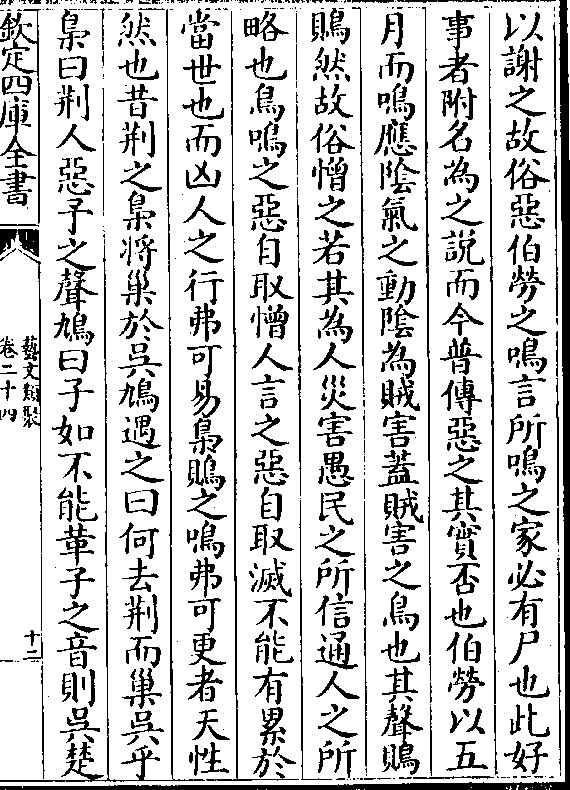 以謝之故俗惡伯勞之鳴言所鳴之家必有尸也此好
事者附名為之說而今普傳惡之其實否也伯勞以五
月而鳴應陰氣之動陰為賊害蓋賊害之鳥也其聲鵙
鵙然故俗憎之若其為人災害愚民之所信通人之所
略也鳥鳴之惡自取憎人言之惡自取滅不能有累於
當世也而凶人之行弗可易梟鵙之鳴弗可更者天性
然也昔荆之梟將巢於吳鳩遇之曰何去荆而巢吳乎
梟曰荆人惡予之聲鳩曰子如不能革子之音則吳楚
欽定四庫全書
藝文類聚
卷二十四
十二